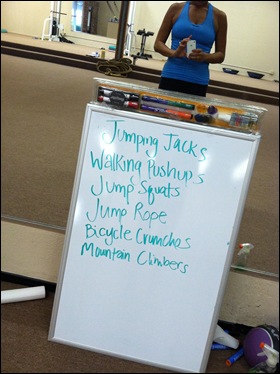 Jumping Jacks
Walking Pushups
Jump Squats
Jump Rope
Bicycle Crunches
Mountain Climbers